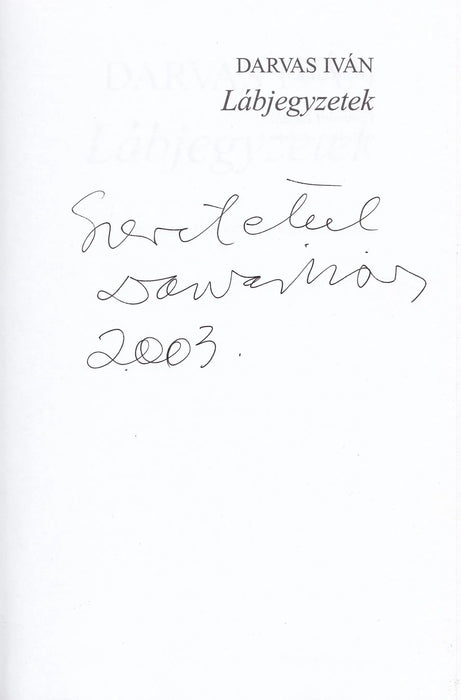 DARVAS IVÁN
Lábjegyzetek
Szeretettel
Darvas Iván
2003.